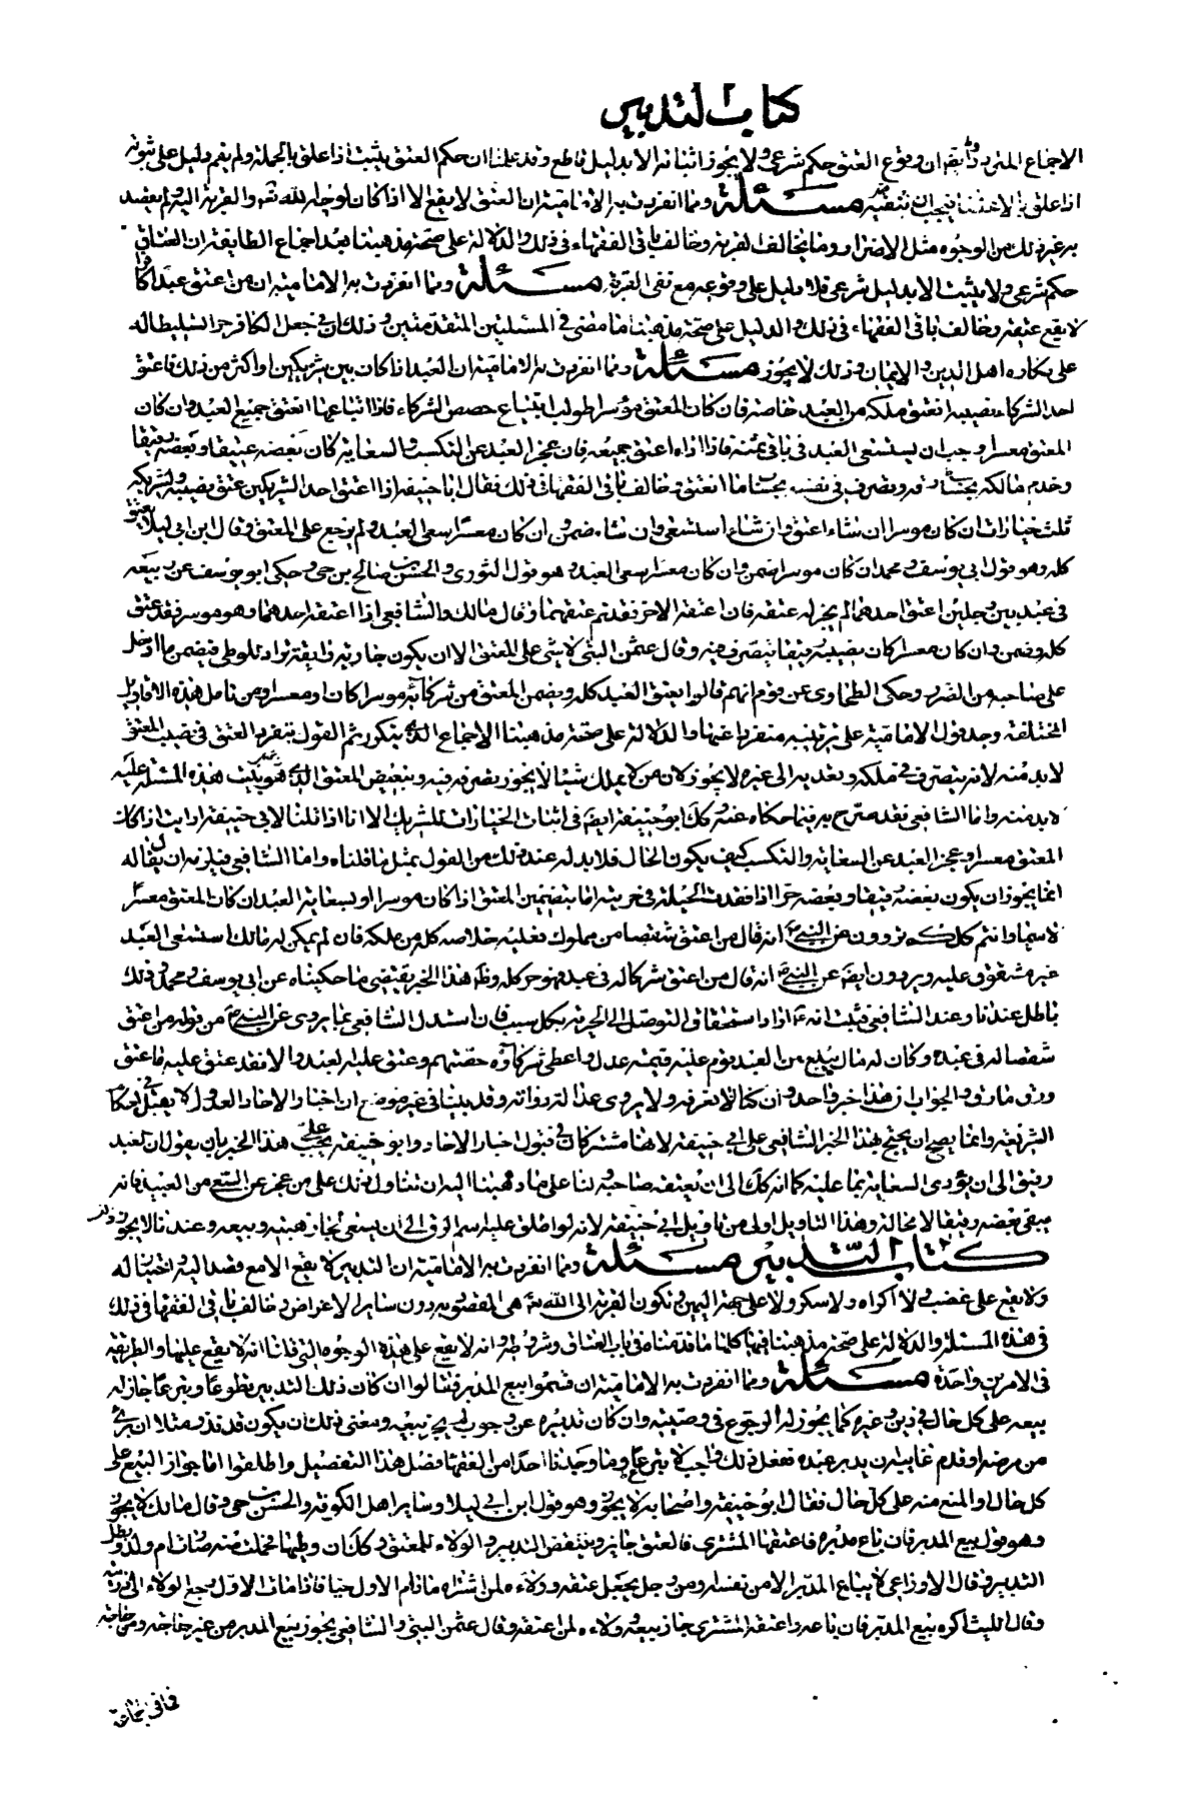 كتاب التدبير
الاجماع المتردد وايضا فان وقوع العتق حكم شرعي ولا يجوز اثباته الا بدليل قاطع وقد علمنا ان حكم العتق يثبت اذا علق بالجملة ولم يقم دليل على ثبوته
اذا علق بالاعضاء فيجب ان ننفيه مسئلة ومما انفردت به الامامية ان العتق لا يقع الا اذا كان لوجه الله تعالى والقربة اليه ولم يقصد
به غير ذلك من الوجوه مثل الاضرار وما يخالف القربة وخالف باقي الفقهاء في ذلك والدلالة على صحة مذهبنا بعد اجماع الطايفة ان العتاق
حكم شرعي ولا يثبت الا بدليل شرعي فلا دليل على وقوعه مع نفى القربة مسئلة ومما انفردت به الامامية ان من اعتق عبدا كافرا
لا يقع عتقه وخالف باقي الفقهاء في ذلك والدليل على صحة مذهبنا ما مضى في المسئلتين المتقدمتين وذلك ان في جعل الكافر حرا تسليطا له
على مكاره اهل الدين والايمان وذلك لا يجوز مسئلة ومما انفردت به الامامية ان العبد اذا كان بين شريكين او اكثر من ذلك فاعتق
احد الشركاء نصيبه انعتق ملكه من العبد خاصة فان كان المعتق موسرا طولب بابتياع حصص الشركاء فاذا ابتاعها انعتق جميع العبد وان كان
المعتق معسرا وجب ان يستسعى العبد في باقي ثمنه فاذا اداه اعتق جميعه فان عجز العبد عن التكسب والسعاية كان بعضه عتيقا وبعضه رقيقا
وخدم مالكه بحساب رقه وتصرف في نفسه بحساب ما انعتق وخالف باقي الفقهاء في ذلك فقال ابا حنيفة اذا اعتق احد الشريكين عتق نصيبه ولشريكه
ثلث خيارات ان كان موسرا ان شاء اعتق وان شاء استسعى وان شاء ضمن وان كان معسرا سعى العبد ولم يرجع على المعتق وقال ابن ابي ليلا يعتق
كله وهو قول ابي يوسف ومحمد ان كان موسرا ضمن وان كان معسرا سعى العبد وهو قول الثوري والحسن بن صالح بن حي وحكى ابو يوسف عن ربيعة
في عبد بين رجلين اعتق احدهما لم يجز له عتقه فان اعتقه الاخر فقد تم عتقهما وقال مالك والشافعي اذا اعتقه احدهما وهو موسر فقد عتق
كله وضمن وان كان معسرا كان نصيبه رقيقا يتصرف فيه وقال عثمن البتي لا شيء على المعتق الا ان يكون جارية رايقة تراد للوطي فيضمن ما ادخل
على صاحبه من الضرر وحكى الطحاوي عن قوم انهم قالوا يعتق العبد كله ويضمن المعتق من شركائه موسرا كان او معسرا ومن تامل هذه الاقاويل
المختلفة وجد قول الامامية على ترتيبه متفردا عنها والدلالة على صحة مذهبنا الاجماع الذي يتكرر ثم القول بتفرد العتق في نصيب المعتق
لا بد منه لانه يتصرف في ملكه وتعديه الى غيره لا يجوز لان من لا يملك شيئا لا يجوز تصرفه فيه وتبعيض المعتق الذي هو هذه المسئلة عليه
لا بد منه واما الشافعي فقد صرح به فيما حكاه عنه وكك ابو حنيفة ايضا في اثبات الخيارات للشريك الا انا اذا قلنا لابي حنيفة ارايت اذا كان
المعتق معسرا وعجز العبد عن السعاية والتكسب كيف يكون الحال فلا بد له عند ذلك من القول بمثل ما قلناه واما الشافعي فيلزمه ان يقال له
انما يجوز ان يكون بعضه رقيقا وبعضه حرا اذا فقدت الحيلة في حريته اما بتضمين المعتق اذا كان موسرا او بسعاية العبد ان كان المعتق معسرا
لا سيما وانتم كلكم تروون عن النبي انه قال من اعتق شقصا من مملوك فعليه خلاصه كله من ملكه فان لم يمكن له مالك استسعى العبد
غير مشقوق عليه ويردون ايضا عن النبي انه قال من اعتق شركا له في عبد فهو حر كله وظاهر هذا الخبر يقتضي ما حكيناه عن ابي يوسف ومحمد وذلك
باطل عندنا وعند الشافعي فثبت انه اراد استحقاق التوصل الى الحرية بكل سبب فان استدل الشافعي بما يروى عن النبي من قوله من اعتق
شقصا له في عبده وكان له مال يبلغ ثمن العبد قوم عليه قيمة عدل واعطى شركاؤه حصتهم وعتق عليه العبد والا فقد عتق عليه ما عتق
ورق ما رق والجواب ان هذا خبر واحد وان كنا لا نعرفه ولا يروى عدالة رواته وقد بينا في غير موضع ان اخبار الاحاد العدول لا يعمل في احكام
الشريعة وانما يصح ان يحتج بهذا الخبر الشافعي على ابي حنيفة لانهما مشتركان في قبول اخبار الاحاد وابو حنيفة يجيب على هذا الخبر بان يقول ان العبد
رقيق الى ان يؤدي السعاية بما عليه كما انه كك الى ان يعتقه صاحبه ولنا على ما ذهبنا اليه ان نتاول ذلك على من عجز عن السعي من العبيد فانه
يبقى بعضه رقيقا لا محالة وهذا التاويل اولى من تاويل ابي حنيفة لانه لو اطلق عليه اسم الرق الى ان يسعى لجاز هبته وبيعه وعندنا لا يجوز ذلك
كتاب التدبير مسئلة ومما انفردت به الامامية ان التدبير لا يقع الا مع قصد اليه واختيار له
ولا يقع على غضب ولا اكراه ولا سكر ولا على جهة اليمين وتكون القربة الى الله تعالى هي المقصودة به دون ساير الاعراض وخالف باقي الفقهاء في ذلك
في هذه المسئلة والدلالة على صحة مذهبنا فيها كلما ما قدمناه في باب العتاق وشروطه وانه لا يقع على هذه الوجوه التي قلنا انه لا يقع عليها والطريقة
في الامرين واحدة مسئلة ومما انفردت به الامامية ان قسموا بيع المدبر فقالوا ان كان ذلك التدبير تطوعا وتبرعا جاز له
بيعه على كل حال في دين وغيره كما يجوز له الرجوع في وصيته وان كان تدبيره عن وجوب لم يجز بيعه ومعنى ذلك ان يكون قد نذر مثلا ان برئ
من مرضه او قدم غايبه ان يدبر عبده ففعل ذلك واجبا لا تبرعا وما وجدنا احدا من الفقهاء فصل هذا التفصيل واطلقوا اما جواز البيع على
كل حال او المنع منه على كل حال فقال ابو حنيفة واصحابه لا يجوز وهو قول ابن ابي ليلا وساير اهل الكوفة والحسن بن حي وقال مالك لا يجوز
وهو قول بيع المدبر فان باع مدبره فاعتقها المشتري فالعتق جايز وينتقض التدبير والولاء للمعتق وكك ان وطئها فحملت منه صارت ام ولد وبطل
التدبير وقال الاوزاعي لا يباع المدبر الا من نفسه او من رجل يعجل عتقه وولاءه لمن اشتراه ما دام الاول حيا فاذا مات الاول رجع الولاء الى ورثته
وقال الليث اكره بيع المدبر فان باعه واعتقه المشتري جاز بيعه وولاءه لمن اعتقه وقال عثمن البتي والشافعي يجوز بيع المدبر من غير حاجة ومن حاجة